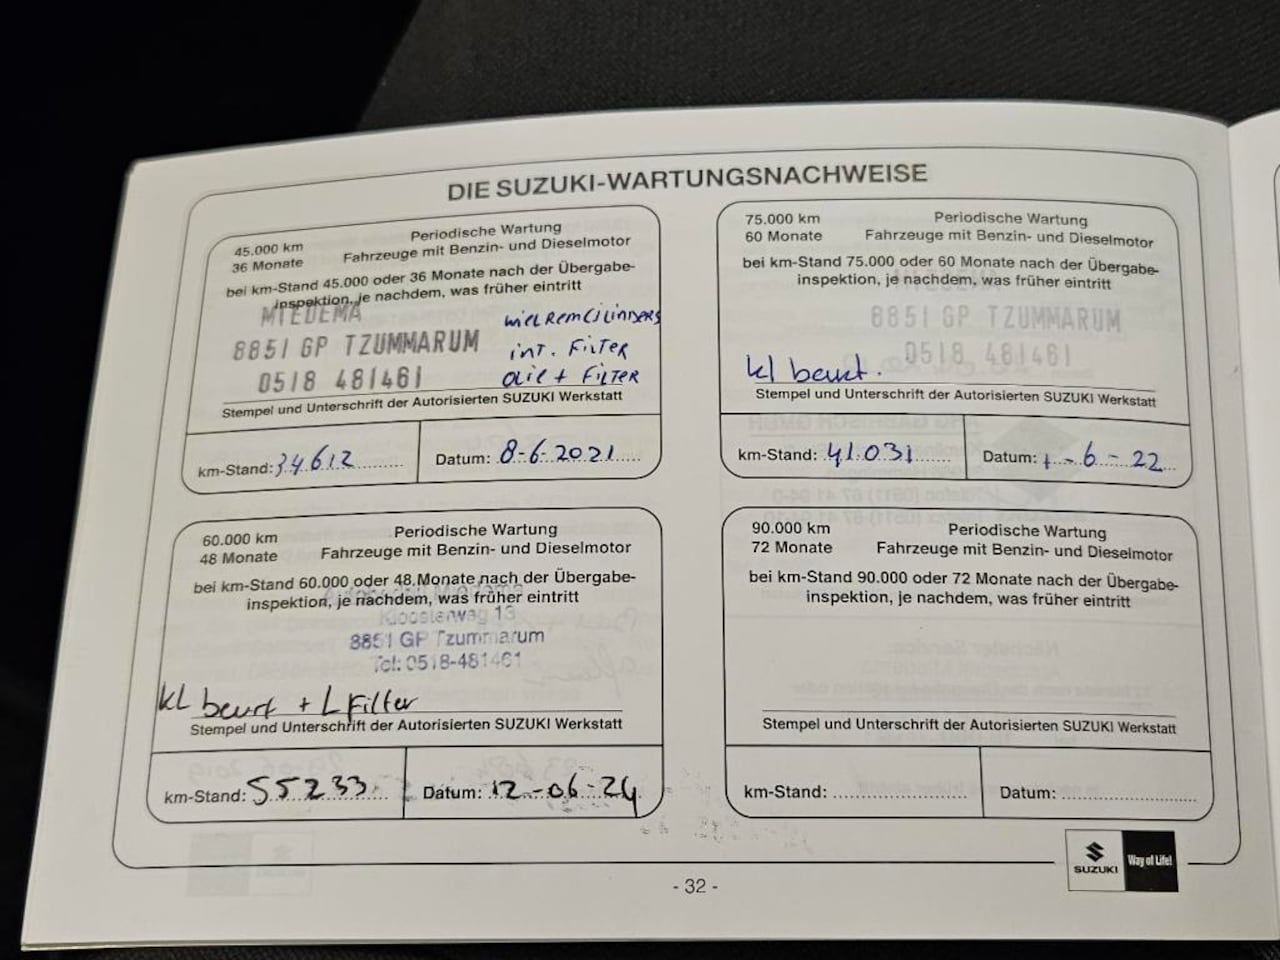 DIE SUZUKI-WARTUNGSNACHWEISE
45.000 km
36 Monate
Periodische Wartung
Fahrzeuge mit Benzin- und Dieselmotor
bei km-Stand 45.000 oder 36 Monate nach der Übergabe-
inspektion, je nachdem, was früher eintritt
MIEDEMA
8851 GP TZUMMARUM
0518 481461
wielremcilinders
int. Filter
olie + Filter
Stempel und Unterschrift der Autorisierten SUZUKI Werkstatt
km-Stand: 34.612
Datum: 8-6-2021
75.000 km
60 Monate
Periodische Wartung
Fahrzeuge mit Benzin- und Dieselmotor
bei km-Stand 75.000 oder 60 Monate nach der Übergabe-
inspektion, je nachdem, was früher eintritt
MIEDEMA
8851 GP TZUMMARUM
0518 481461
kl beurt.
Stempel und Unterschrift der Autorisierten SUZUKI Werkstatt
km-Stand: 41.031
Datum: 1-6-22
60.000 km
48 Monate
Periodische Wartung
Fahrzeuge mit Benzin- und Dieselmotor
bei km-Stand 60.000 oder 48 Monate nach der Übergabe-
inspektion, je nachdem, was früher eintritt
Miedema
Kloosterweg 13
8851 GP Tzummarum
Tel: 0518-481461
kL beurt + L Filter
Stempel und Unterschrift der Autorisierten SUZUKI Werkstatt
km-Stand: 55233
Datum: 12-06-24
90.000 km
72 Monate
Periodische Wartung
Fahrzeuge mit Benzin- und Dieselmotor
bei km-Stand 90.000 oder 72 Monate nach der Übergabe-
inspektion, je nachdem, was früher eintritt
Stempel und Unterschrift der Autorisierten SUZUKI Werkstatt
km-Stand:
Datum:
SUZUKI
Way of Life!
- 32 -